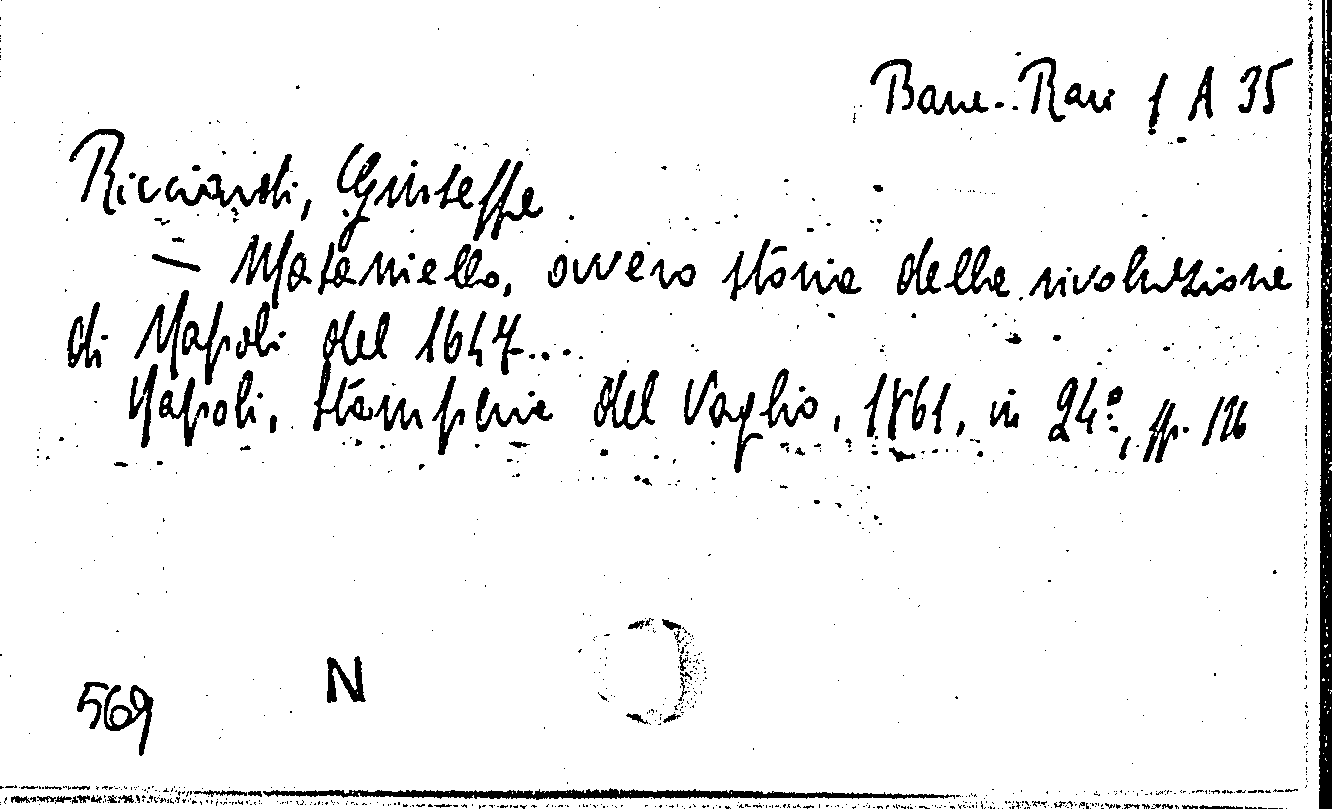 Banc. Rari 1 A 35
Ricciardi, Giuseppe
— Masaniello, ovvero storia della rivoluzione
di Napoli del 1647...
Napoli, Stamperia del Vaglio, 1861, in 24º, pp. 126
N
569